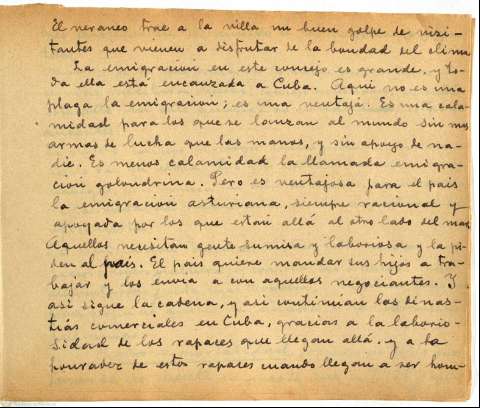 El veraneo trae a la villa un buen golpe de visi-
tantes que vienen a disfrutar de la bondad del clima
La emigracion en este concejo es grande, y to-
da ella está encauzada a Cuba. Aqui no es una
plaga la emigracion; es una ventaja. Es una cala-
midad para los que se lanzan al mundo sin mas
armas de lucha que las manos, y sin apoyo de na-
die. Es menos calamidad la llamada emigra-
cion golondrina. Pero es ventajosa para el pais
la emigracion asturiana, siempre racional y
apoyada por los que estan allá al otro lado del mar
Aquellos necesitan gente sumisa y laboriosa y la pi-
den al pais. El pais quiere mandar sus hijos a tra-
bajar y los envia a con aquellos negociantes. Y
asi sigue la cadena, y asi continúan las dinas-
tias comerciales en Cuba, gracias a la laborio-
sidad de los rapaces que llegan allá. y a la
honradez de estos rapaces cuando llegan a ser hom-